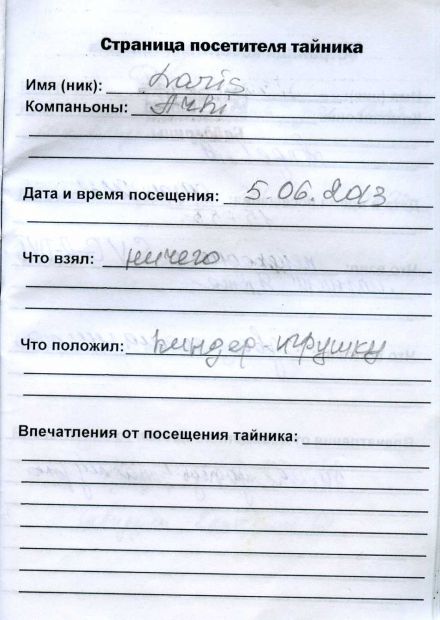 Страница посетителя тайника
Имя (ник): Laris
Компаньоны:
Дата и время посещения: 5.06.2013
Что взял: ничего
Что положил: киндер-игрушку
Впечатления от посещения тайника: